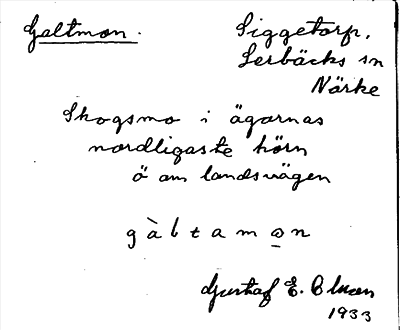 Galtmon.
Siggetorp,
Lerbäcks sn
Närke
Skogsmo i ägornas
nordligaste hörn
ö om landsvägen
g à l t a m o n
Gustaf E.
1933